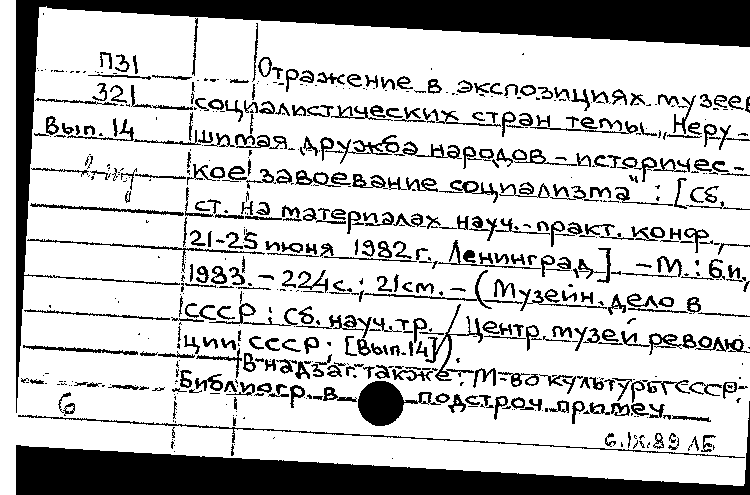 П31
321
Вып. 14
Отражение в экспозициях музеев
социалистических стран темы „Неру-
шимая дружба народов – историчес-
кое завоевание социализма" : [Сб.
ст. на материалах науч.-практ. конф.,
21-25 июня 1982 г., Ленинград]. – М. : Б.и.,
1983. – 224 с. ; 21 см. – (Музейн. дело в
СССР : Сб. науч. тр. / Центр. музей револю-
ции СССР ; [Вып. 14]).
В надзаг. также: М-во культуры СССР.
Библиогр. в подстроч. примеч.
6
6.IX.89 ЛБ